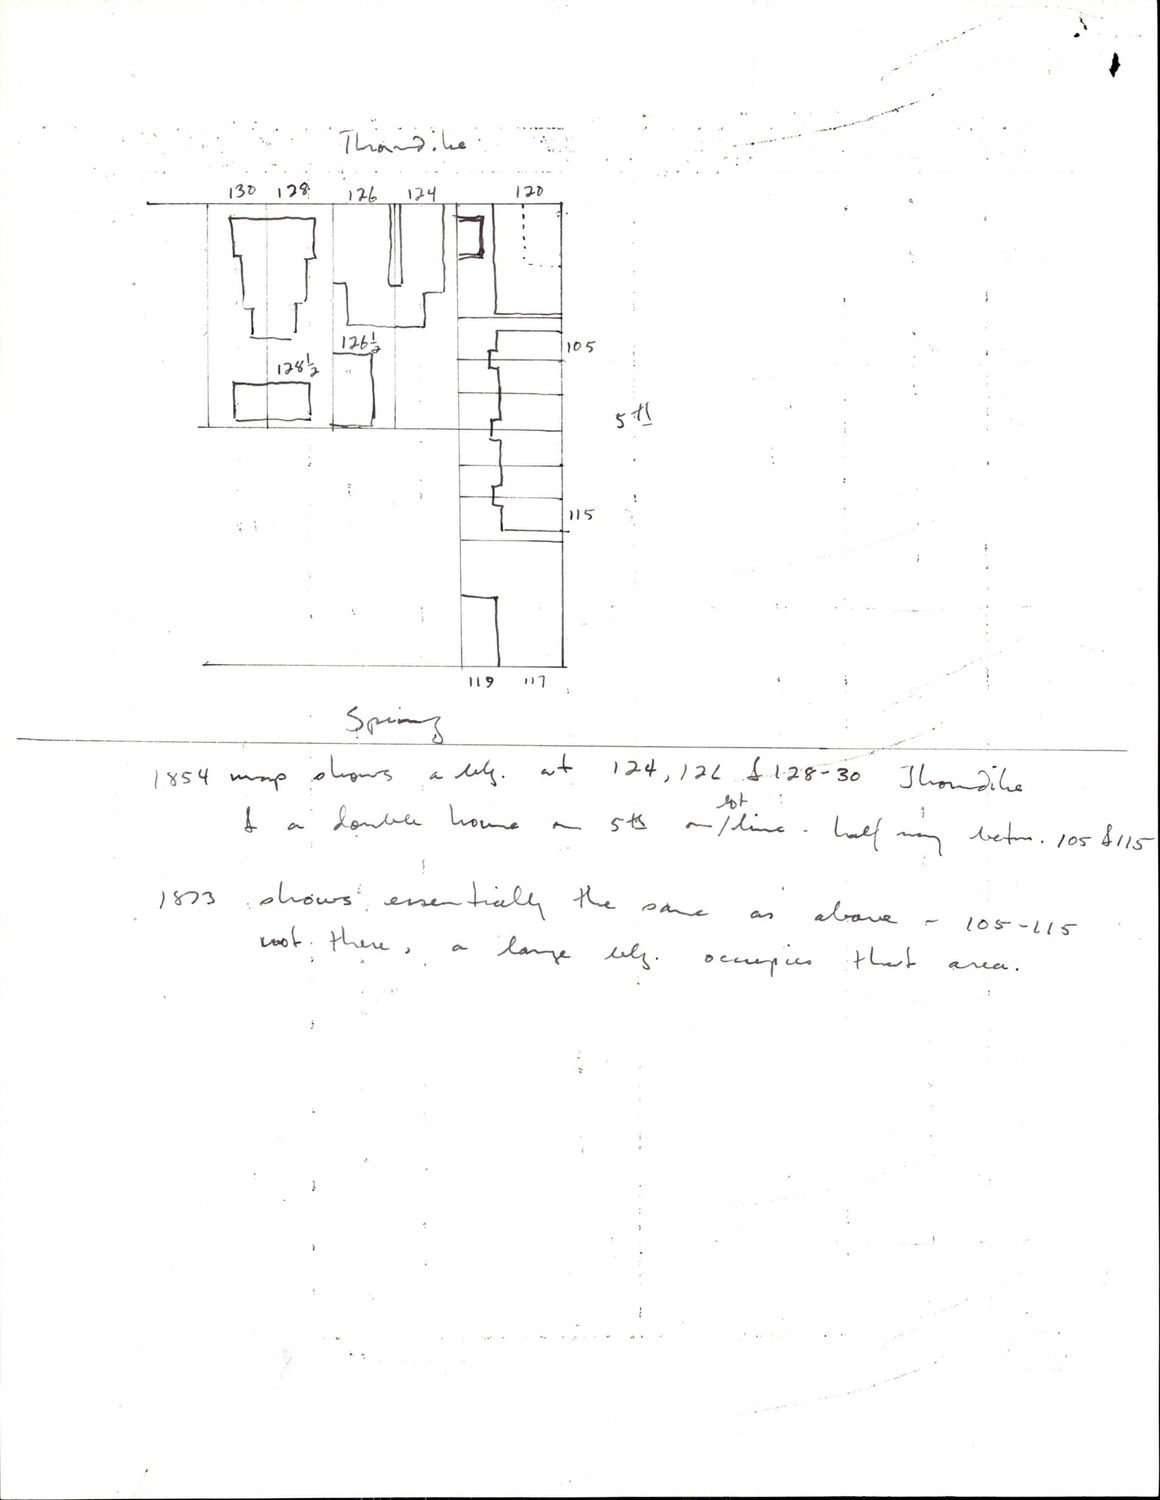 Thorndike
130 128 126 124 120
105
126½
128½
5th
115
119 117
Spring
1854 map shows a bldg. at 124, 126 & 128-30 Thorndike
lot
& a double house on 5th on/line - half way betw. 105 & 115
1873 shows essentially the same as above - 105-115
not there, a large bldg. occupies that area.